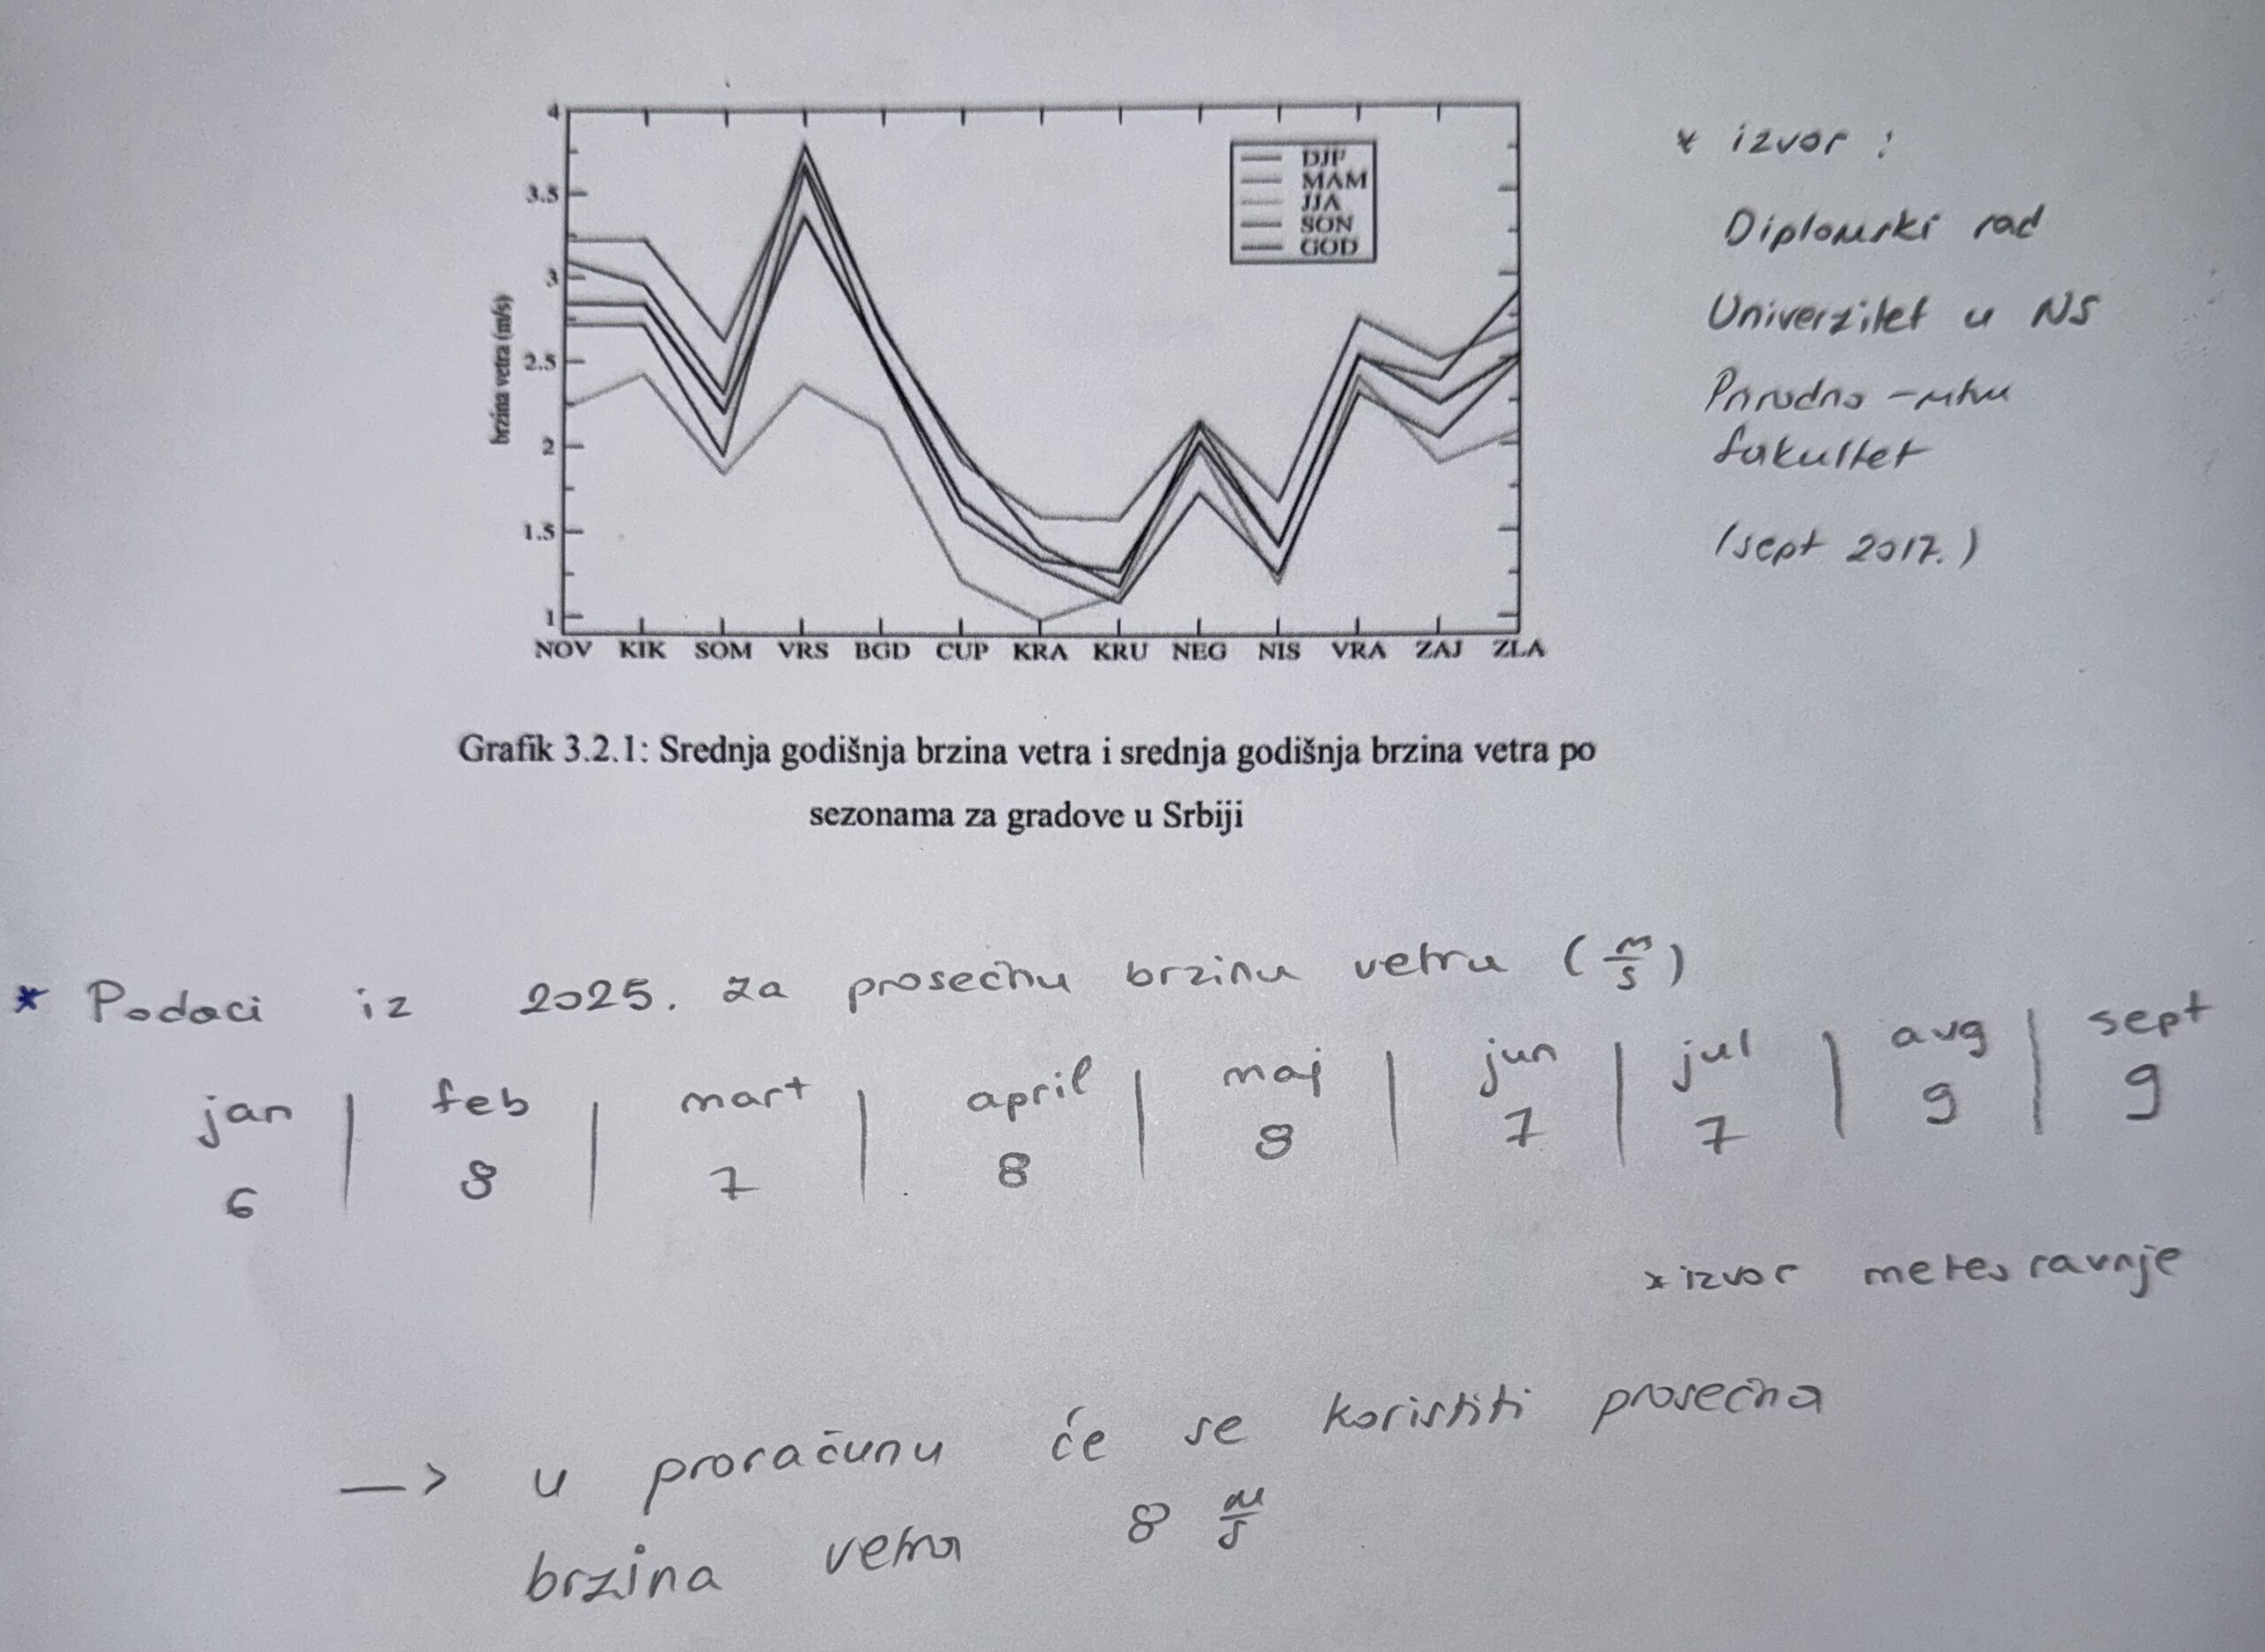 4
3.5
3
2.5
2
1.5
1
brzina vetra (m/s)
DJF
MAM
JJA
SON
GOD
NOV KIK SOM VRS BGD CUP KRA KRU NEG NIS VRA ZAJ ZLA
* izvor :
Diplomski rad
Univerzitet u NS
Prirodno -
fakultet
(sept 2017.)
Grafik 3.2.1: Srednja godišnja brzina vetra i srednja godišnja brzina vetra po
sezonama za gradove u Srbiji
* Podaci iz 2025. za prosečnu brzinu vetra (m/s)
jan | feb | mart | april | maj | jun | jul | avg | sept
6 8 7 8 8 7 7 9 9
* izvor meteo ravnje
—> u proračunu će se koristiti prosečna
brzina vetra 8 m/s